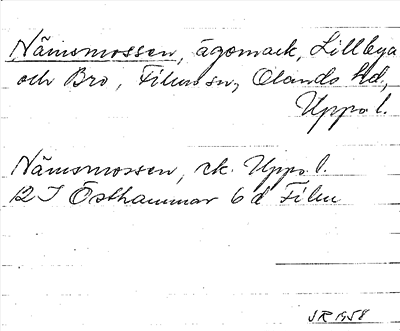 Nämsmossen, ägomark, Lillbyn
och Bro, Films sn, Olands hd,
Upps l.
Nämsmossen, ek. Upps. l.
12 I Östhammar 6 d Film
JR 1958